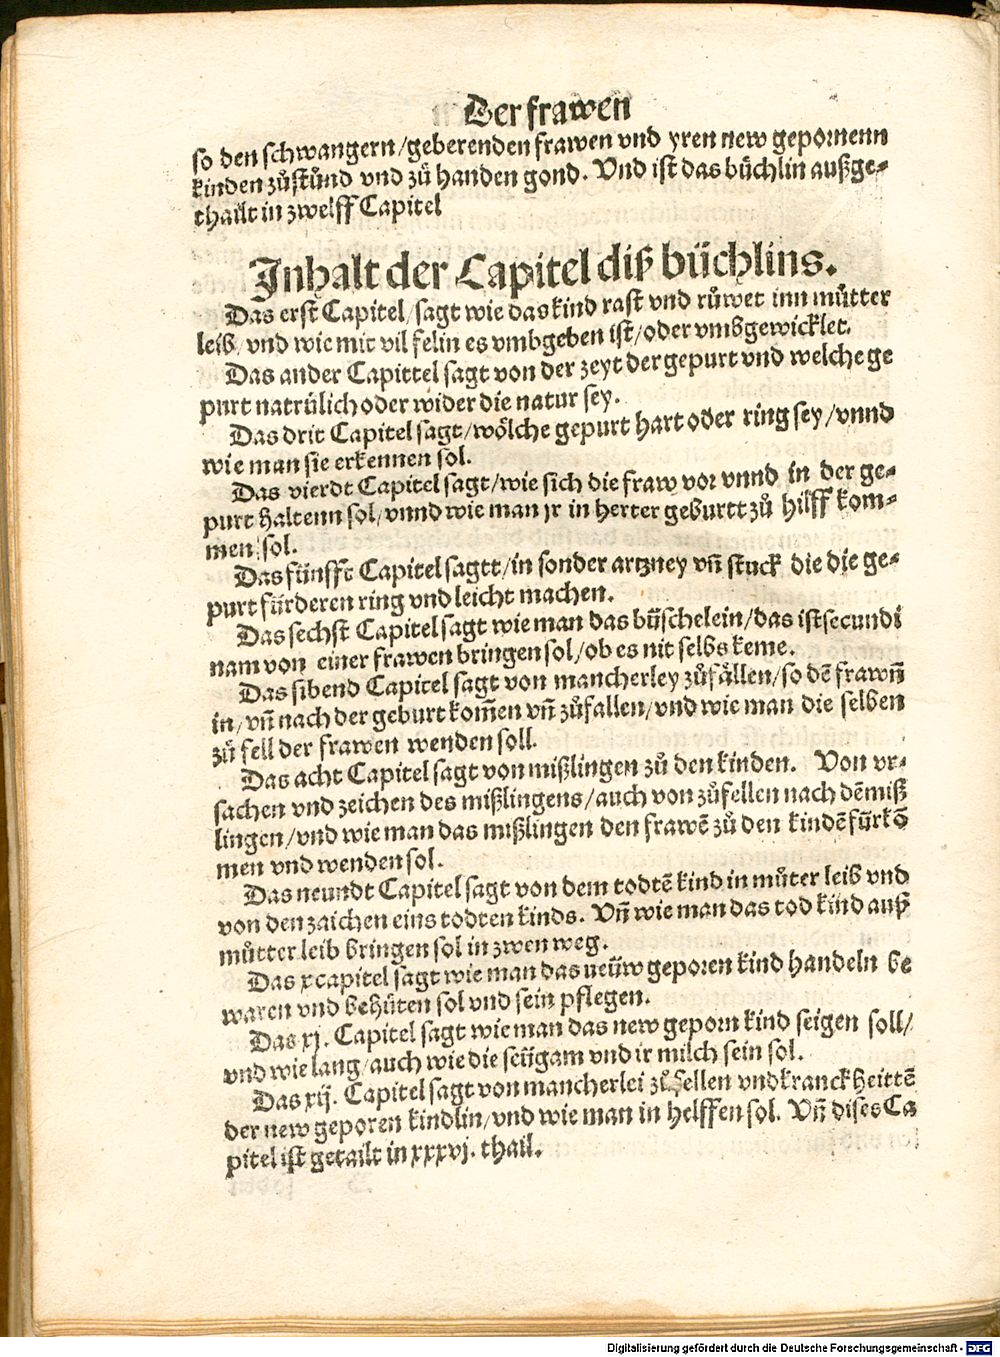 Der frawen
so den schwangern/geberenden frawen vnd yren new gepornenn
kinden zůstůnd vnd zů handen gond. Vnd ist das büchlin außge-
thailt in zwelff Capitel
Jnhalt der Capitel diß büchlins.
Das erst Capitel/sagt wie das kind rast vnd růwet inn můtter
leib/vnd wie mit vil felin es vmbgeben ist/oder vmbgewicklet.
Das ander Capittel sagt von der zeyt der gepurt vnd welche ge
purt natrülich oder wider die natur sey.
Das drit Capitel sagt/wölche gepurt hart oder ring sey/vnnd
wie man sie erkennen sol.
Das vierdt Capitel sagt/wie sich die fraw vor vnnd in der ge-
purt haltenn sol/vnnd wie man jr in herter geburtt zů hilff kom-
men sol.
Das fünfft Capitel sagtt/in sonder artzney vñ stuck die die ge-
purt fürderen ring vnd leicht machen.
Das sechst Capitel sagt wie man das büschelein/das ist secundi
nam von einer frawen bringen sol/ob es nit selbs keme.
Das sibend Capitel sagt von mancherley zůfällen/so dē frawñ
in/vñ nach der geburt kom̃en vñ zůfallen/vnd wie man die selben
zů fell der frawen wenden soll.
Das acht Capitel sagt von mißlingen zů den kinden. Von vr-
sachen vnd zeichen des mißlingens/auch von zůfellen nach dē miß
lingen/vnd wie man das mißlingen den frawē zů den kindē fürkō
men vnd wenden sol.
Das neundt Capitel sagt von dem todtē kind in můter leib vnd
von den zaichen eins todten kinds. Vñ wie man das tod kind auß
můtter leib bringen sol in zwen weg.
Das x capitel sagt wie man das neüw geporen kind handeln be
waren vnd behüten sol vnd sein pflegen.
Das xj. Capitel sagt wie man das new geporn kind seigen soll/
vnd wie lang/auch wie die seügam vnd ir milch sein sol.
Das xij. Capitel sagt von mancherlei zůfellen vnd kranckheittē
der new geporen kindlin/vnd wie man in helffen sol. Vñ dises Ca
pitel ist getailt in xxxvj. thail.
Digitalisierung gefördert durch die Deutsche Forschungsgemeinschaft - DFG